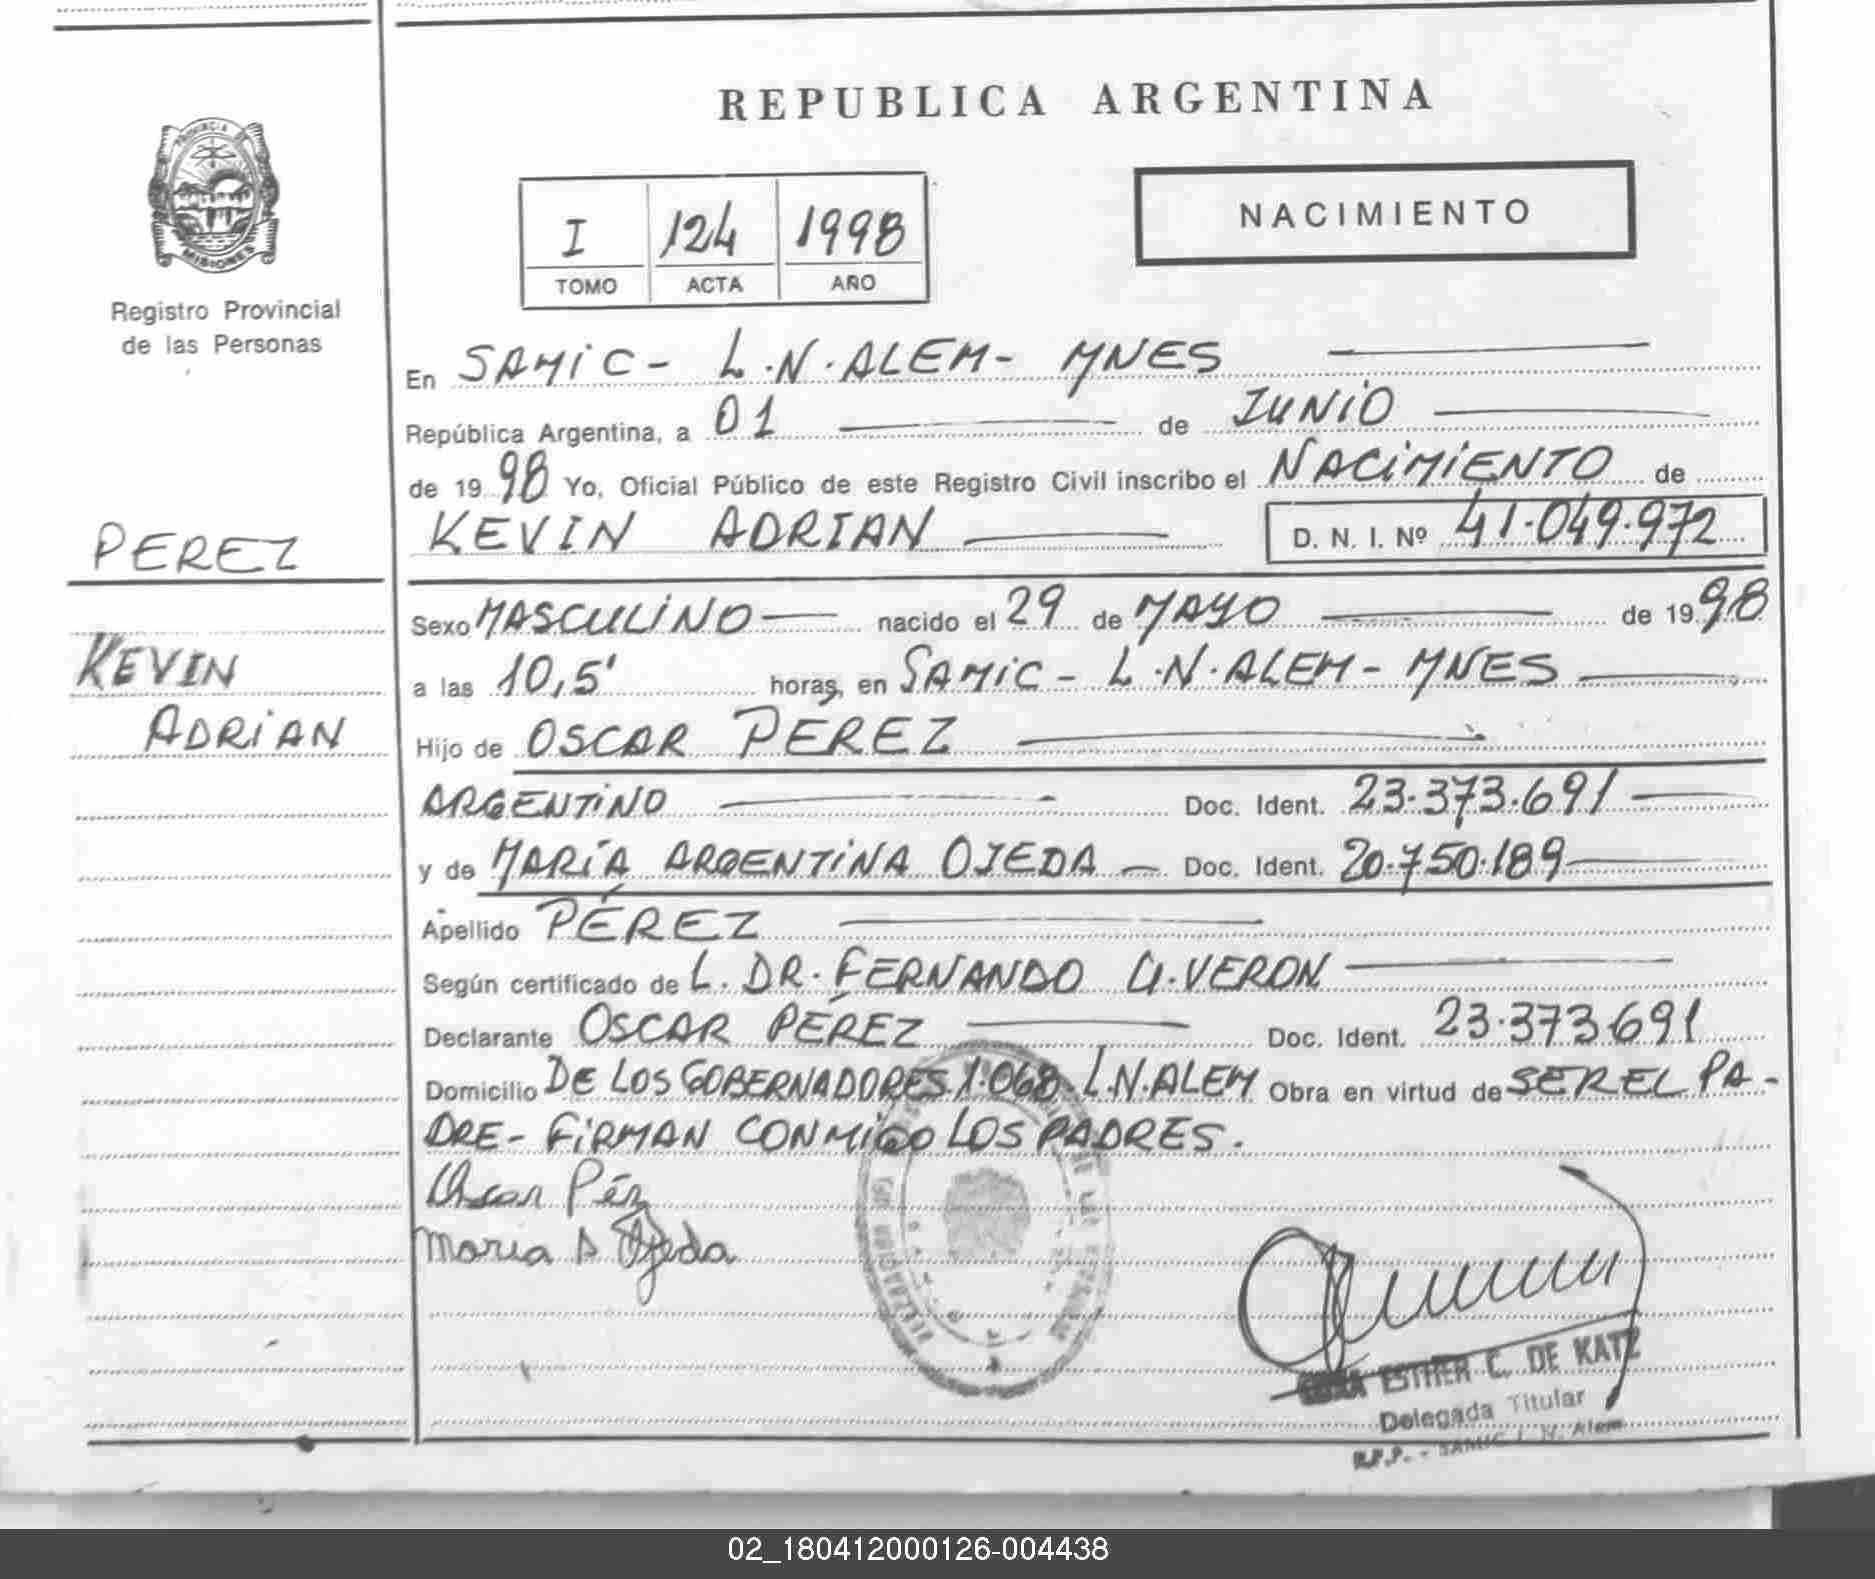 REPUBLICA ARGENTINA
PROVINCIA DE
MISIONES
Registro Provincial
de las Personas
I 124 1998
TOMO ACTA AÑO
NACIMIENTO
En SAMIC - L.N.ALEM - MNES
República Argentina, a 01 de JUNIO
de 1998 Yo, Oficial Público de este Registro Civil inscribo el NACIMIENTO de
KEVIN ADRIAN D. N. I. Nº 41.049.972
PEREZ
KEVIN
ADRIAN
Sexo MASCULINO nacido el 29 de MAYO de 1998
a las 10,5' horas, en SAMIC - L.N.ALEM - MNES
Hijo de OSCAR PÉREZ
ARGENTINO Doc. Ident. 23.373.691
y de MARÍA ARGENTINA OJEDA Doc. Ident. 20.750.189
Apellido PÉREZ
Según certificado de L. DR. FERNANDO VERON
Declarante OSCAR PÉREZ Doc. Ident. 23.373.691
Domicilio DE LOS GOBERNADORES 1.068 L.N.ALEM Obra en virtud de SER EL PA-
DRE - FIRMAN CONMIGO LOS PADRES.
Oscar Pérez
Maria A Ojeda
ESTHER C. DE KATZ
Delegada Titular
R.P.P. - SAMIC L. N. Alem
02_180412000126-004438